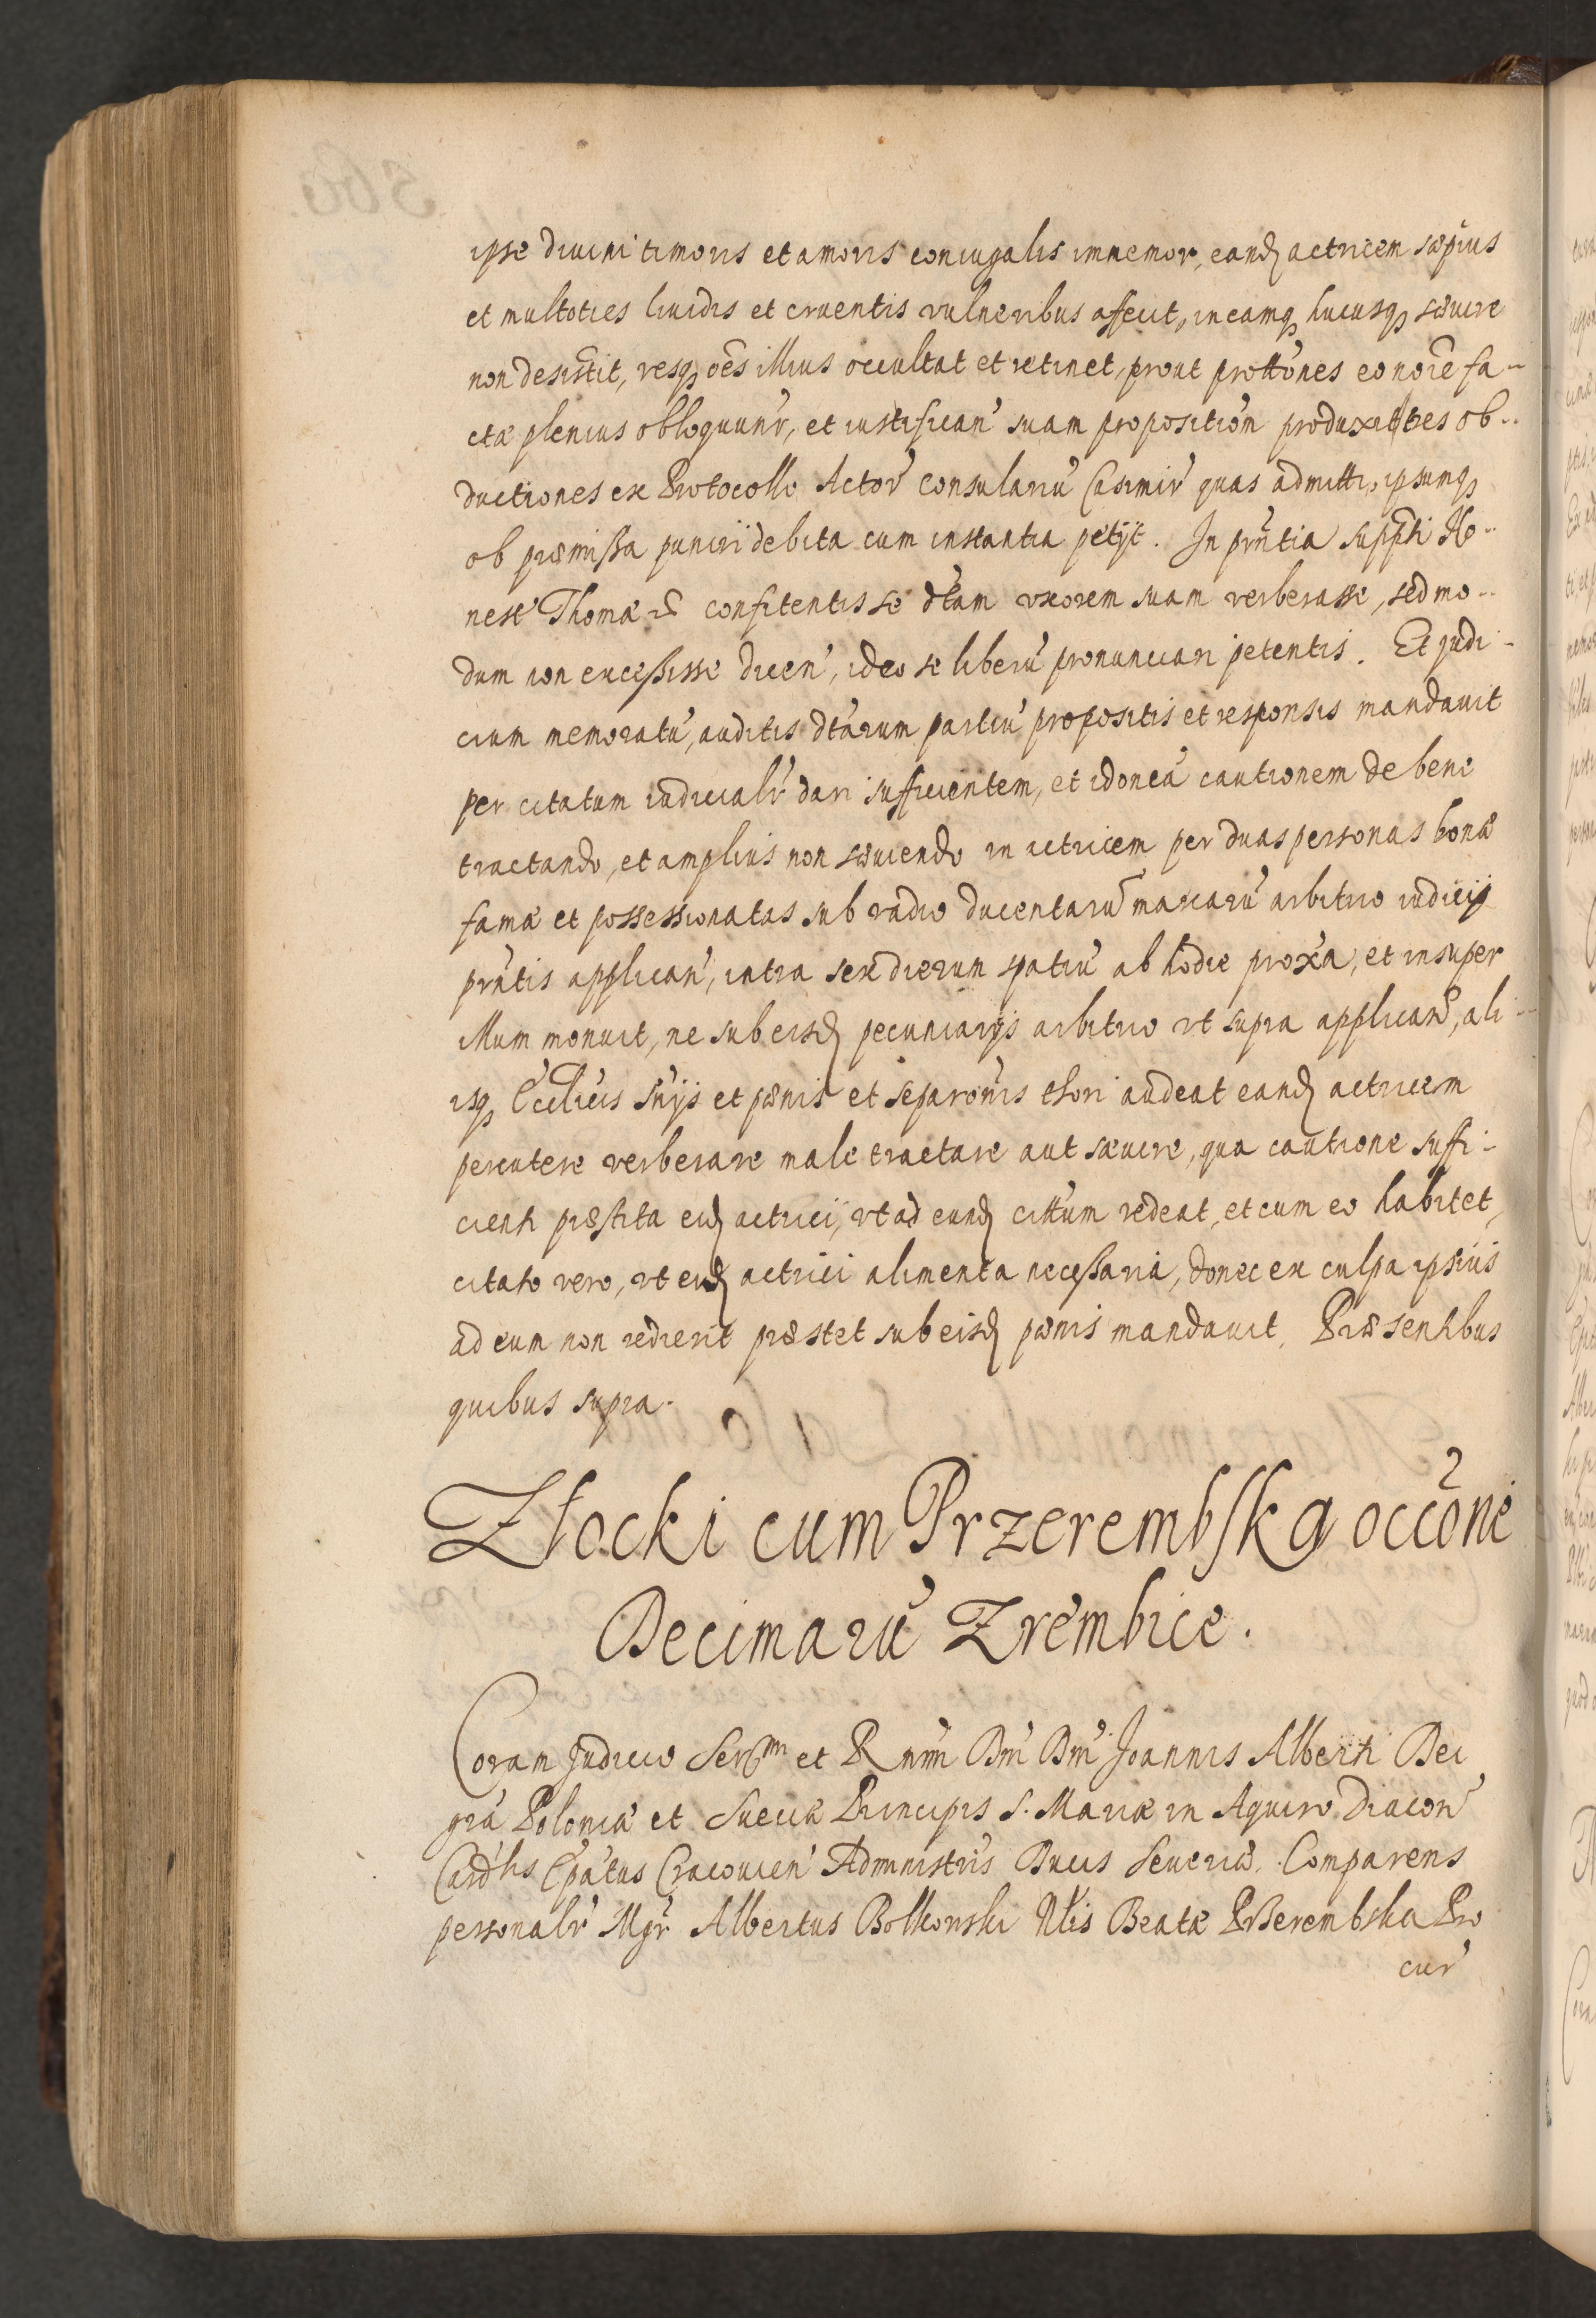 ipse diuini timoris et amoris coniugalis immemor, eand₃ actricem sæpius
et multoties liuidis et cruentis vulneribus affecit, in eamq₃ hucusq₃ sæuire
non desistit, resq₃ oēs illius occultat et retinet, prout prottōnes eo noīe fa-
ctæ plenius obloquunt̕r, et iustifican̕ suam proposition̕ produxit tres ob-
ductiones ex Protocollo Actor̕ Consulariū Casimir̕ quas admitti, ipsumq₃
ob præmissa puniri debita cum instantia petijt. In prn̄tia supp̄ti Ho-
nest̕ Thomæ confitentis se dt̄am vxorem suam verberasse, sed mo-
dum non excessisse dicen̕, ideo se liberū pronunciari petentis. Et judi-
cium memoratū, auditis dt̄arum partiū propositis et responsis mandauit
per citatum iudicialr̕ dari sufficientem, et idoneā cautionem de bene
tractando, et amplius non sæuiendo in actricem per duas personas bonæ
famæ et possessionatas sub vadio ducentarū marcarū arbitrio iudicij
prn̄tis applican̕, intra sex dierum spatiū ab hodie proxa̕, et insuper
illum monuit, ne sub eisd₃ pecuniarijs arbitrio vt supra applicand̕, ali-
isq₃ Eccl̄icis sn̄ijs et pœnis et separōnis thori audeat eand₃ actricem
percutere verberare male tractare aut sæuire, qua cautione suffi-
cienti præstita eid₃ actrici, vt ad eund₃ cittūm redeat, et cum eo habitet,
citato vero, vt eid₃ actrici alimenta necessaria, donec ex culpa ipsius
ad eum non redierit præstet sub eisd₃ pœnis mandauit. Præsentibus
quibus supra.
Złocki cum Przerembska occōne
Decimarū Zrembice.
Coram Judicio Serm̄ et Rn̄mi Dn̄i Dn̄i Joannis Alberti Dei
grā Poloniæ et Sueciæ Principis S. Mariæ in Aquiro Diacon̕
Cardl̄is Ep̄atus Cracouien̕ Administris Ducis Seueriæ. Comparens
personalr̕ Mgr̄ Albertus Bolkowski Nl̄is Beatæ Przerembska Pro
cur̕